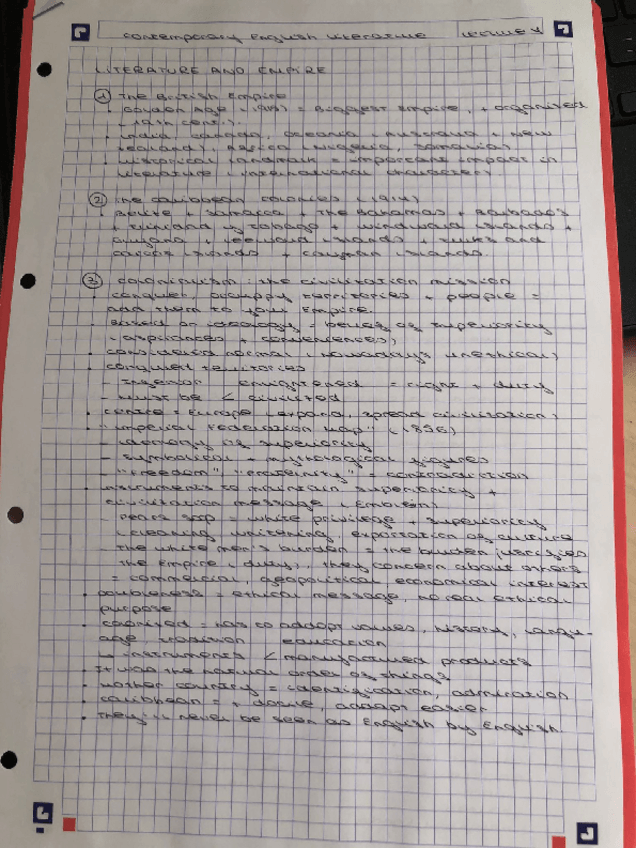 Contemporary English Literature Lecture 4
LITERATURE AND EMPIRE
1 The British Empire
· Golden Age (1914) = Biggest Empire, + organised
(19th cent.).
· India, Canada, Oceania (Australia + New
Zealand), Africa (Nigeria, Somalia)
· Historical landmark = important impact in
literature (international character)
2 The Caribbean colonies (1914)
· Belize + Jamaica + The Bahamas + Barbados
+ Trinidad y Tobago + Windward Islands +
Guyana + Leeward Islands + Turks and
Caicos Islands + Cayman Islands.
3 Colonialism: the civilization mission
· Conquer, occuppy territories + people =
add them to your Empire.
· Based on ideology = belief of superiority
(appliances + conveniences)
· Considered normal (nowadays unethical)
· Conquered territories
- Inferior Enlightened = right + duty
- Must be < civilized
· Centre = Europe (expand, spread civilization)
· "Imperial Federation Map" (1886)
- Ideology of superiority
- Symbolical + mythological figures
- "Freedom" "Fraternity" = contradiction
· Instruments to maintain superiority +
civilization message (Emblem)
- Pears soap = white privilege + superiority
(cleaning, whitening, exportation of culture
- The white men's burden = the burden justifies
the Empire (duty), they concern about others
= commercial, geopolitical economical interest
· Doubleness = ethical message, no real ethical
purpose
· Colonized = has to adopt values, history, langu-
age, tradition education
- instruments < manufactured products
· It was the natural order of things
· Mother country = identification, admiration
· Caribbean = + docile, adapt easier
· They'll never be seen as English by English.